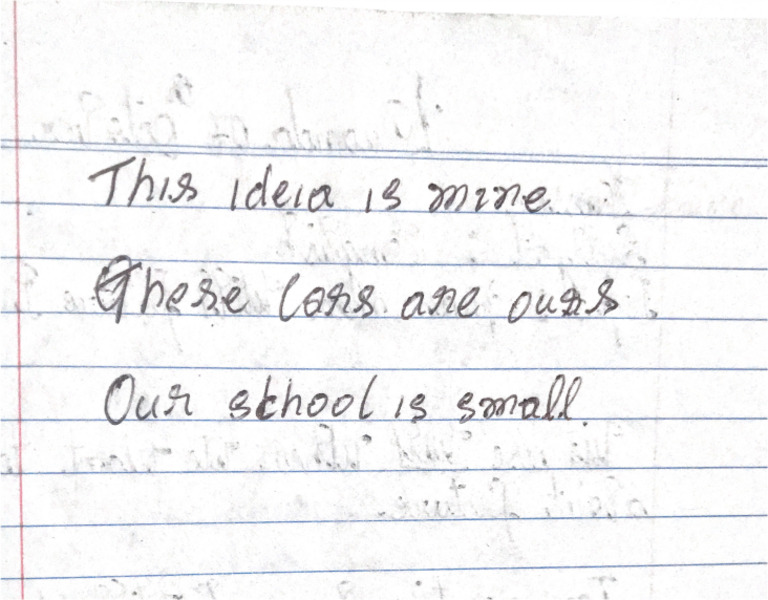 This ideia is mine.
These Cars are ours.
Our school is small.